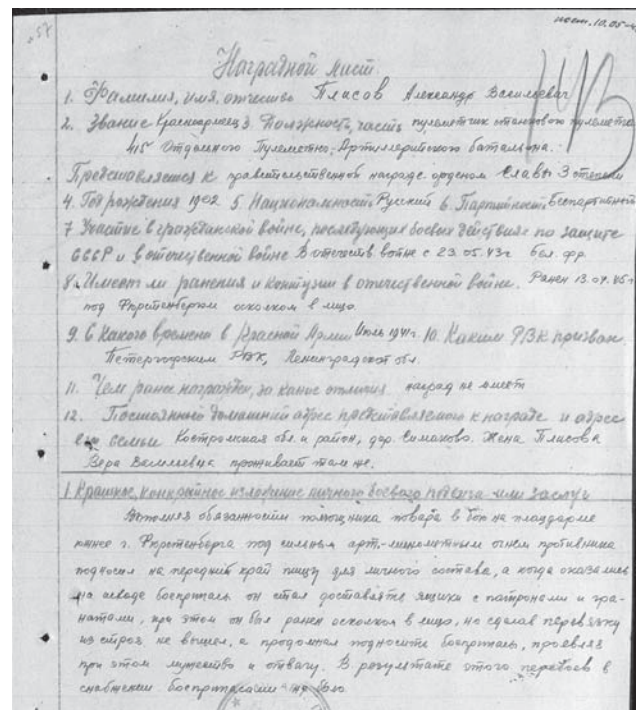 пост. 10.05-4
Наградной лист
1. Фамилия, имя, отчество Пласов Александр Васильевич
2. Звание Красноармеец 3. Должность, часть пулеметчик станкового пулемета
415 Отдельного Пулеметно-Артиллерийского батальона.
Представляется к правительственной награде орденом Славы 3 степени
4. Год рождения 1902 5. Национальность Русский 6. Партийность Беспартийный
7 Участие в гражданской войне, последующих боевых действиях по защите
СССР и в отечественной войне В отечеств. войне с 23.05.43г Бел. фр.
8. Имеет ли ранения и контузии в отечественной войне. Ранен 13.04.45г
под Фюрстенбергом осколком в лицо.
9. С Какого времени в Красной Армии Июль 1941г. 10. Каким РВК призван
Петергофским РВК, Ленинградской обл.
11. Чем ранее награжден, за какие отличия наград не имеет
12. Постоянный домашний адрес представляемого к награде и адрес
его семьи Костромская обл. и район, дер. Симаково. Жена Пласова
Вера Васильевна проживает там же.
1 Краткое, конкретное изложение личного боевого подвига или заслуг
Выполняя обязанности помощника повара в бою на плацдарме
южнее г. Фюрстенберга под сильным арт.-минометным огнем противника
подносил на передний край пищу для личного состава, а когда оказались
на исходе боеприпасы он стал доставлять ящики с патронами и гра-
натами, при этом он был ранен осколком в лицо, но сделав перевязку
из строя не вышел, а продолжал подносить боеприпасы, проявляя
при этом мужество и отвагу. В результате этого перебоев в
снабжении боеприпасами не было